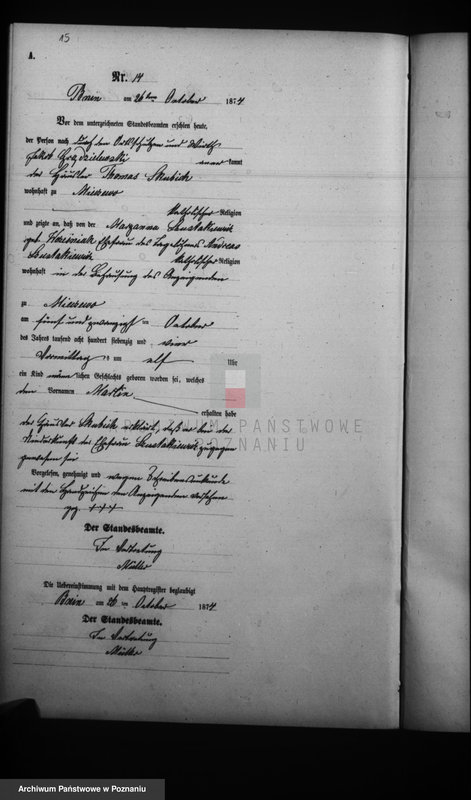 15
A.
Nr. 14
Bnin am 26ten October 1874
Vor dem unterzeichneten Standesbeamten erschien heute,
der Person nach durch den Ortsschulzen und Wirth
Jakob kannt
der Häusler Thomas Skubich
wohnhaft zu
katholischer Religion
und zeigte an, daß von der Maryanna
geb. Ehefrau des Tagelöhners Andreas
katholischer Religion
wohnhaft in der Behausung des Anzeigenden
zu
am fünf und zwanzigst en October
des Jahres tausend acht hundert siebenzig und vier
Vormittag s um elf Uhr
ein Kind männlichen Geschlechts geboren worden sei, welches
den Vornamen Martin
erhalten habe
der Häusler Skubich erklärt, daß er bei der
Niederkunft der Ehefrau zugegen
gewesen sei
Vorgelesen, genehmigt und wegen Schreibensunkunde
mit dem Handzeichen des Anzeigenden versehen
gz. +++
Der Standesbeamte.
In Vertretung
Müller
Die Uebereinstimmung mit dem Hauptregister beglaubigt
Bnin am 26 ten October 1874
Der Standesbeamte.
In Vertretung
Müller
ARCHIWUM PAŃSTWOWE
POZNANIU
Archiwum Państwowe w Poznaniu